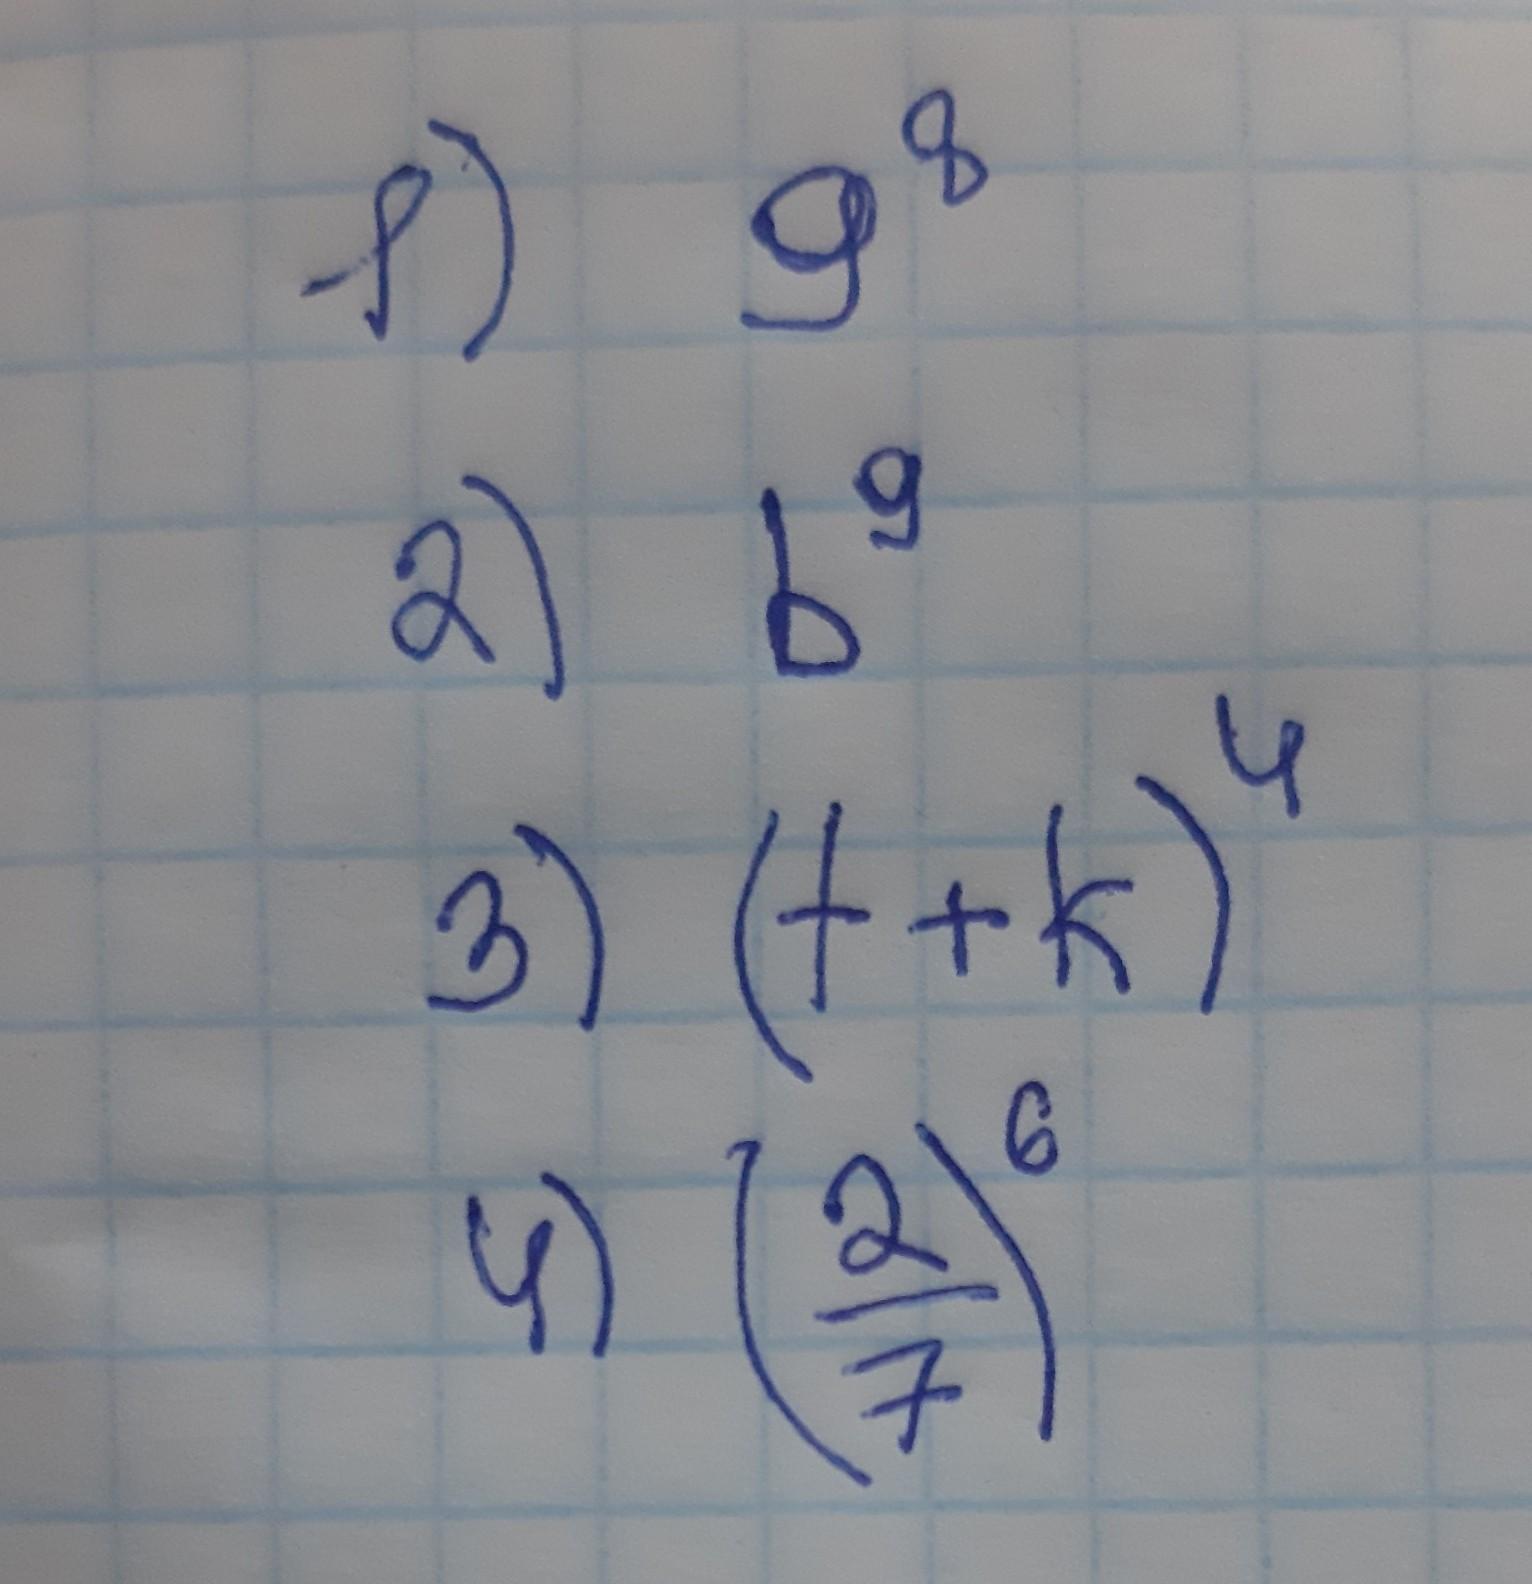 1) 9⁸
2) b⁹
3) (t + k)⁴
4) (2/7)⁶